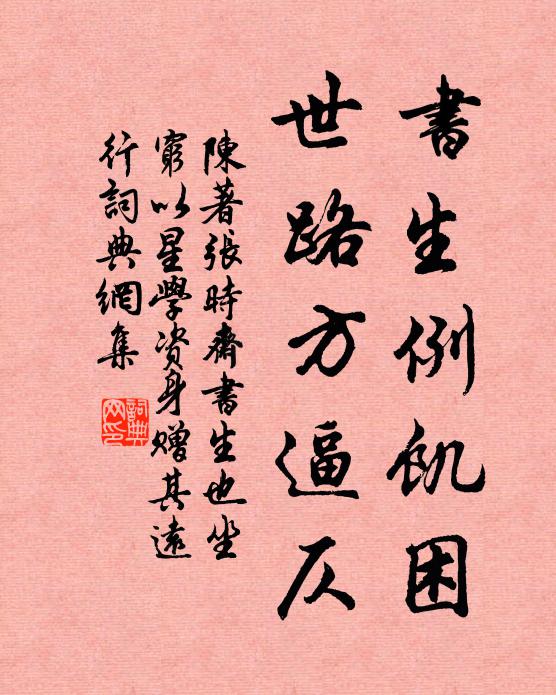 書生例飢困
世路方逼仄
陳著張時齋書生也坐
窮以星學資身贈其遠
行詞典網集
詞典
网印